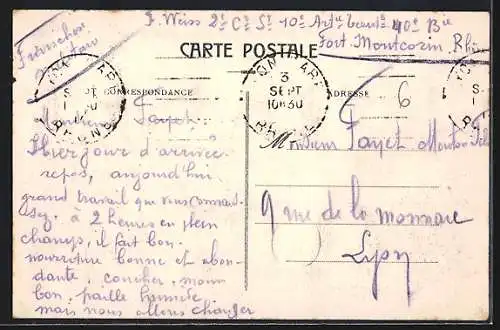 F. Weiss 2e Cie St 10e Artie 40e Bie
Franchise
militaire
Fort Montcorin, Rhône
CARTE POSTALE
CORRESPONDANCE
ADRESSE
3
SEPT
10H30
RHONE
6
Monsieur Fayet
Hier jour d'arrivée
repos, aujourd'hui
grand travail que vous connais-
sez. à 2 heures en plein
champs, il fait bon.
nourriture bonne et abon-
dante, coucher, moins
bon, paille humide
mais nous allons changer
Monsieur Fayet
9 rue de la monnaie
Lyon